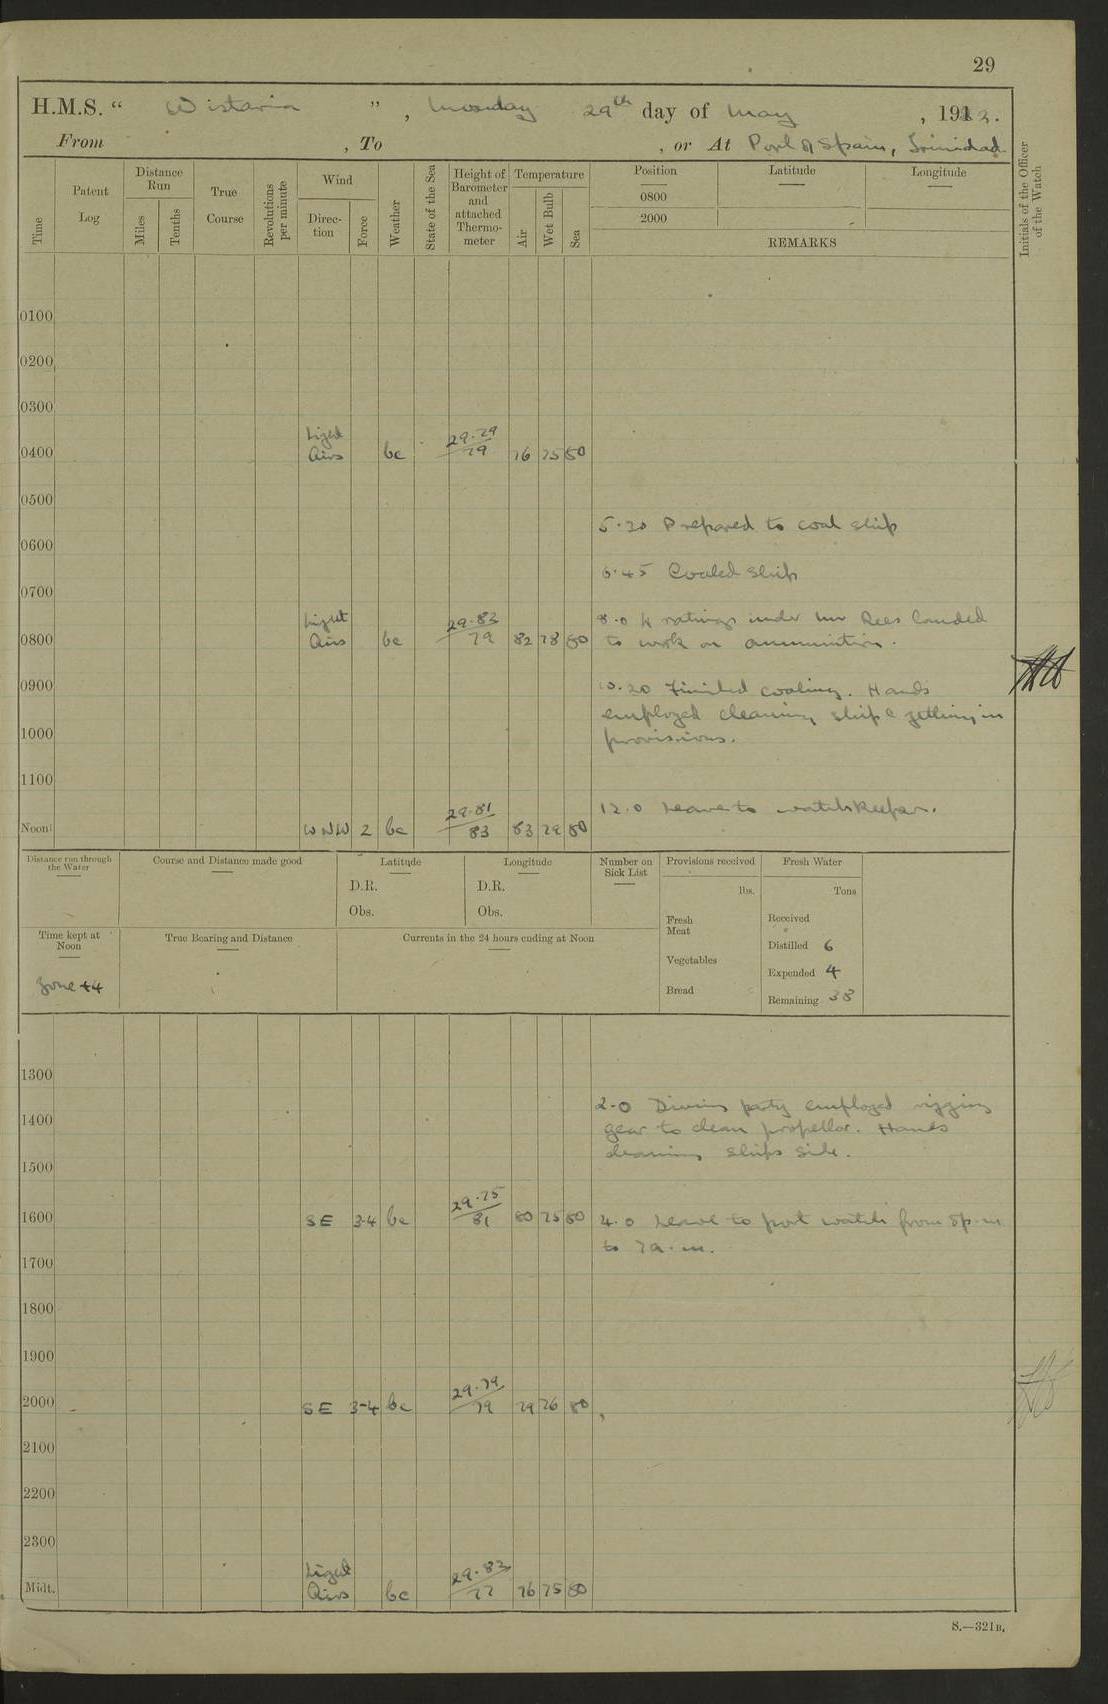 29
H.M.S. “ Wistaria ”, Monday 29th day of May, 1922.
From , To , or At Port of Spain, Trinidad
Time
Patent Log
Distance Run
Miles
Tenths
True Course
Revolutions per minute
Wind
Direc-tion
Force
Weather
State of the Sea
Height of Barometer and attached Thermo-meter
Temperature
Air
Wet Bulb
Sea
Position
Latitude
Longitude
0800
2000
REMARKS
Initials of the Officer of the Watch
0100
0200
0300
Light
0400 Airs bc 29.79 79 76 75 80
0500
5.20 Prepared to coal ship
0600
6.45 Coaled ship
0700
Light 29.83 8.0 4 ratings under Mr Rees landed
0800 Airs bc 79 82 78 80 to work on ammunition.
0900 10.20 Finished coaling. Hands
employed cleaning ship & getting in
1000 provisions.
1100
12.0 Leave to watchkeepers.
Noon WNW 2 bc 29.81 83 83 79 80
Distance run through the Water
Course and Distance made good
Latitude
D.R.
Obs.
Longitude
D.R.
Obs.
Number on Sick List
Provisions received
lbs.
Fresh Meat
Vegetables
Bread
Fresh Water
Tons
Received
Distilled 6
Expended 4
Remaining 38
Time kept at Noon
Zone +4
True Bearing and Distance
Currents in the 24 hours ending at Noon
1300
2.0 Diving party employed rigging
1400 gear to clean propellor. Hands
cleaning ships side.
1500
1600 SE 3-4 bc 29.75 81 80 75 80 4.0 Leave to port watch from 5p.m.
to 7a.m.
1700
1800
1900
2000 SE 3-4 bc 29.79 79 79 76 80
2100
2200
2300
Light
Midt. Airs bc 29.83 77 76 75 80
S.—321B.